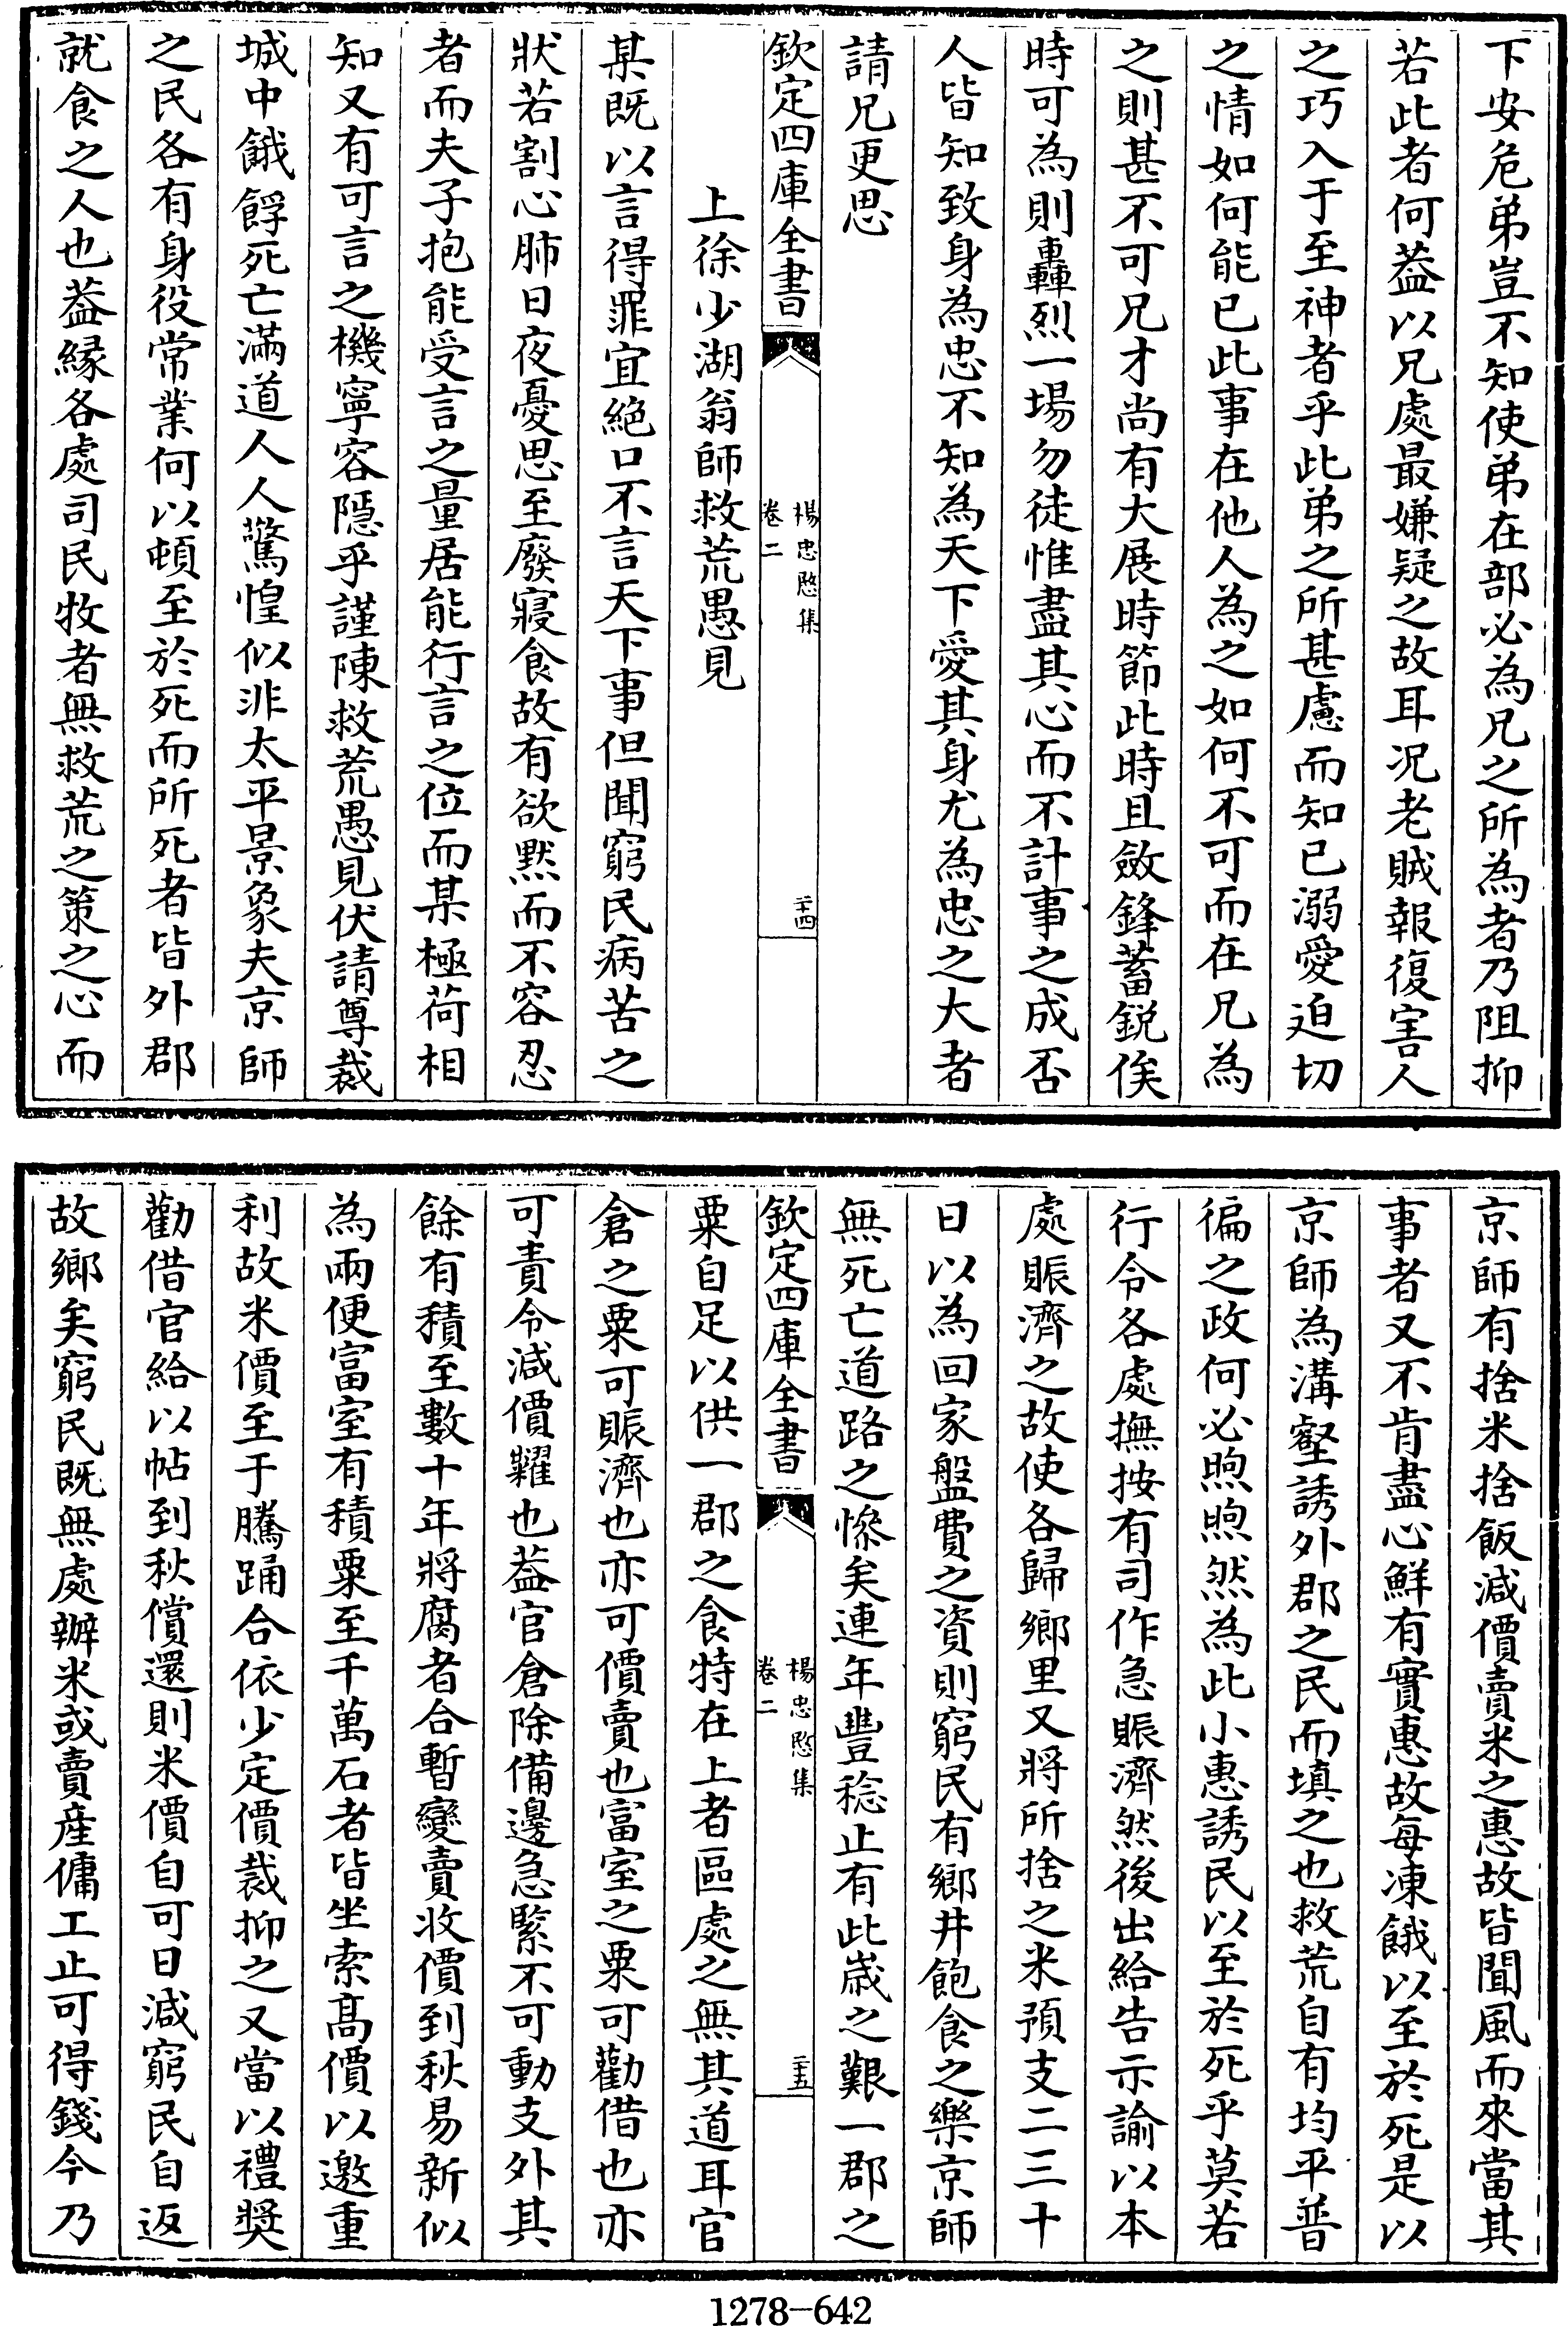 下安危弟豈不知使弟在部必為兄之所為者乃阻抑
若此者何葢以兄處最嫌疑之故耳况老賊報復害人
之巧入于至神者乎此弟之所甚慮而知已溺愛迫切
之情如何能已此事在他人為之如何不可而在兄為
之則甚不可兄才尚有大展時節此時且斂鋒蓄鋭俟
時可為則轟烈一場勿徒惟盡其心而不計事之成否
人皆知致身為忠不知為天下愛其身尤為忠之大者
請兄更思
欽定四庫全書
楊忠愍集
卷二
二十四
上徐少湖翁師救荒愚見
某既以言得罪宜絕口不言天下事但聞窮民病苦之
狀若割心肺日夜憂思至廢寢食故有欲默而不容忍
者而夫子抱能受言之量居能行言之位而某極荷相
知又有可言之機寧容隱乎謹陳救荒愚見伏請尊裁
城中餓殍死亡滿道人人驚惶似非太平景象夫京師
之民各有身役常業何以頓至於死而所死者皆外郡
就食之人也葢緣各處司民牧者無救荒之策之心而
京師有捨米捨飯減價賣米之惠故皆聞風而來當其
事者又不肯盡心鮮有實惠故每凍餓以至於死是以
京師為溝壑誘外郡之民而填之也救荒自有均平普
徧之政何必煦煦然為此小惠誘民以至於死乎莫若
行令各處撫按有司作急賑濟然後出給告示諭以本
處賑濟之故使各歸鄉里又將所捨之米預支二三十
日以為回家盤費之資則窮民有鄉井飽食之樂京師
無死亡道路之慘矣連年豐稔止有此歲之艱一郡之
欽定四庫全書
楊忠愍集
卷二
二十五
粟自足以供一郡之食特在上者區處之無其道耳官
倉之粟可賑濟也亦可價賣也富室之粟可勸借也亦
可責令減價糶也葢官倉除備邊急緊不可動支外其
餘有積至數十年將腐者合暫變賣收價到秋易新似
為兩便富室有積粟至千萬石者皆坐索高價以邀重
利故米價至于騰踊合依少定價裁抑之又當以禮獎
勸借官給以帖到秋償還則米價自可日減窮民自返
故鄉矣窮民既無處辦米或賣產傭工止可得錢今乃
1278-642